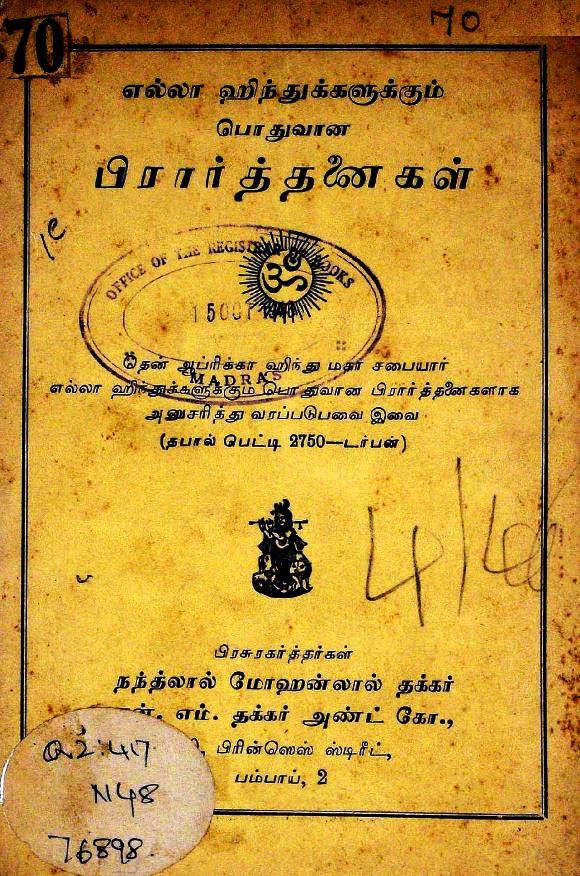 70
70
எல்லா ஹிந்துக்களுக்கும்
பொதுவான
பிரார்த்தனைகள்
OFFICE OF THE REGISTRAR BOOKS
ௐ
15 OCT
MADRAS
தென் ஆப்ரிக்கா ஹிந்து மகா சபையார்
எல்லா ஹிந்துக்களுக்கும் பொதுவான பிரார்த்தனைகளாக
அனுசரித்து வரப்படுபவை இவை
(தபால் பெட்டி 2750—டர்பன்)
பிரசுரகர்த்தர்கள்
நந்த்லால் மோஹன்லால் தக்கர்
என். எம். தக்கர் அண்ட் கோ.,
பிரின்ஸெஸ் ஸ்டிரீட்,
பம்பாய், 2
Q2:417
N48
76898.